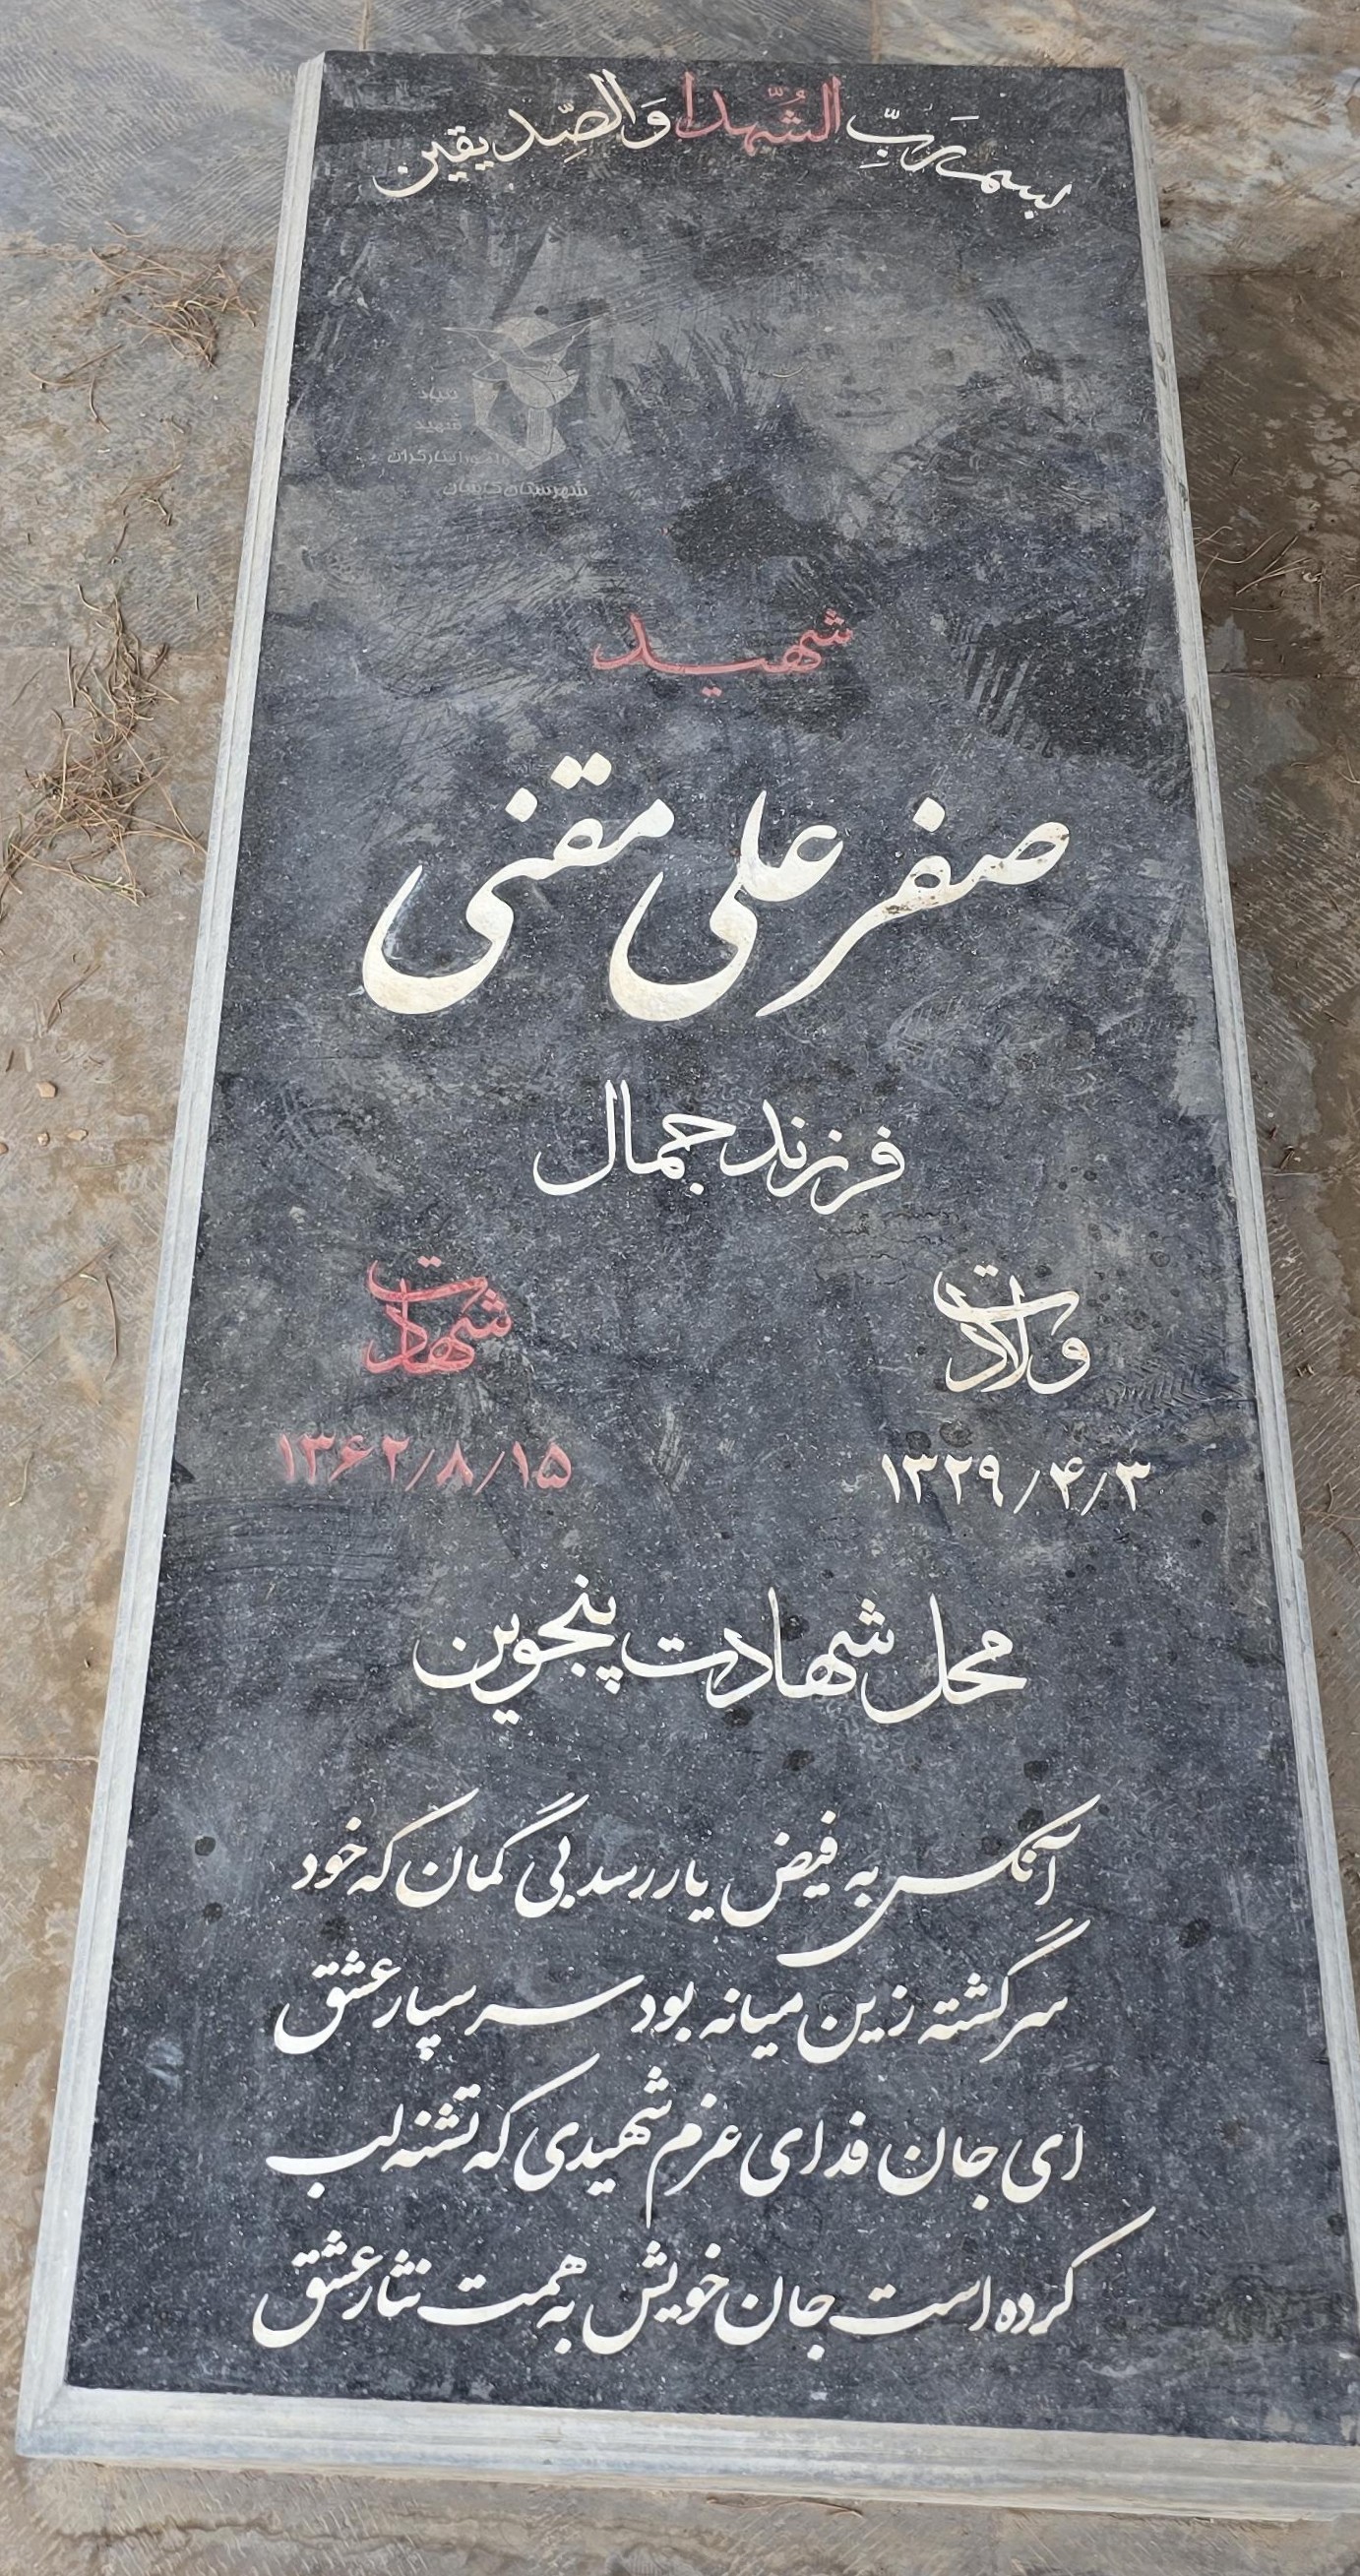 بسم رَبِّ الشُّهدا وَالصِّدیقین
بنیاد
شهید
وامورایثارگران
شهرستان کاشان
شهید
صفرعلی مقنی
فرزند جمال
ولادت
شهادت
۱۳۲۹/۴/۳
۱۳۶۲/۸/۱۵
محل شهادت پنجوین
آنکس به فیض یار رسد بی گمان که خود
سرگشته زین میانه بود سر سپار عشق
ای جان فدای عزم شهیدی که تشنه لب
کرده است جان خویش به همت نثار عشق